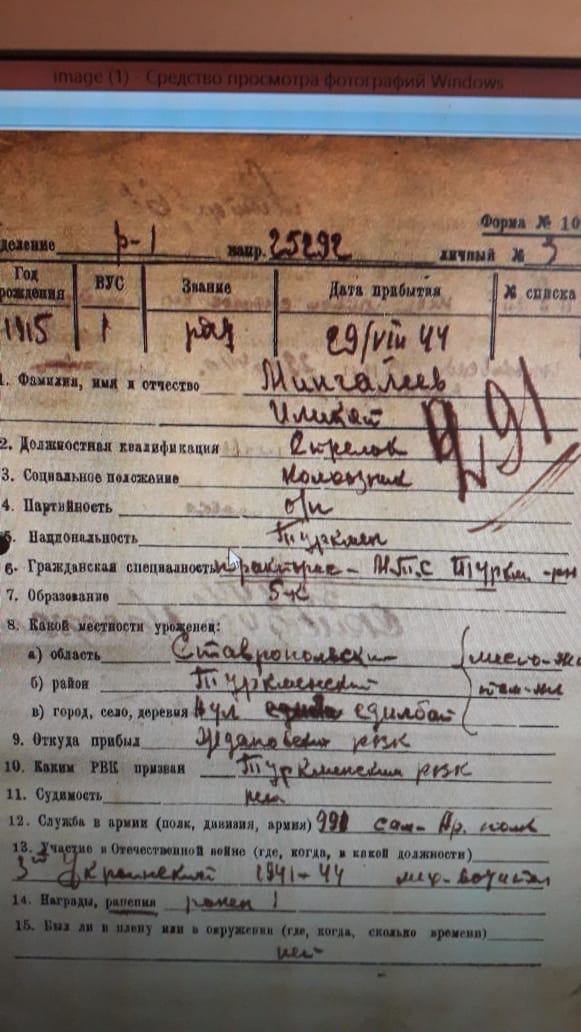 image (1) - Средство просмотра фотографий Windows
Форма № 10
деление р-1 напр. 25292 личный № 3
Год рождения ВУС Звание Дата прибытия № списка
1915 1 ряд 29/VIII 44
1. Фамилия, имя и отчество Мингалеев
2. Должностная квалификация Стрелок
3. Социальное положение колхозник
4. Партийность б/п
5. Национальность Туркмен
6. Гражданская специальность М.Т.С Туркм. р-н
7. Образование 5 к
8. Какой местности уроженец:
а) область Ставропольский
б) район Туркменский
в) город, село, деревня Аул едилбай
9. Откуда прибыл Ждановский рвк
10. Каким РВК призван Туркменским рвк
11. Судимость нет
12. Служба в армии (полк, дивизия, армия) 991 полк
13. Участие в Отечественной войне (где, когда, в какой должности)
3й Украинский 1941-44
14. Награды, ранения ранен 1
15. Был ли в плену или в окружении (где, когда, сколько времени)
нет